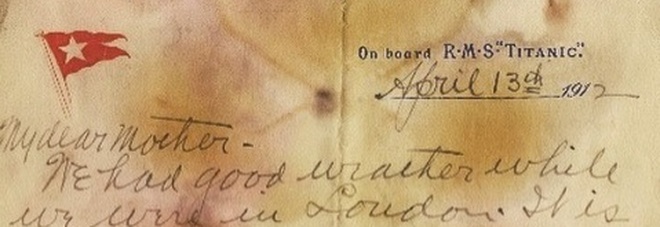 On board R·M·S·"TITANIC".
April 13th 1912
My dear Mother -
We had good weather while
we were in London. It is